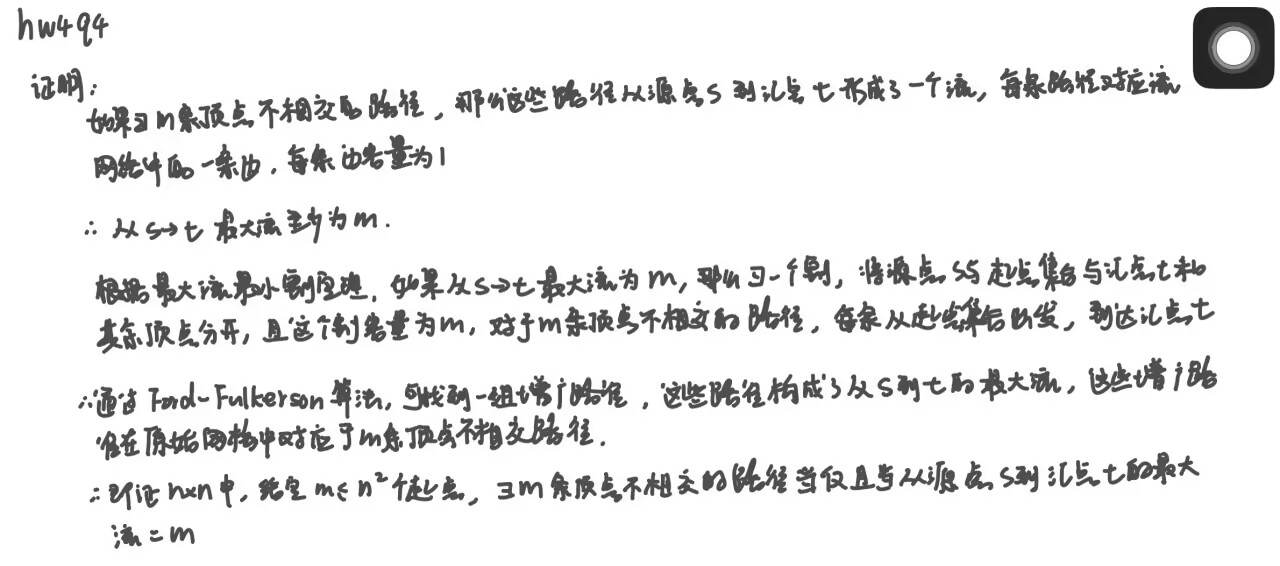 hw4q4
证明:
如果∃m条顶点不相交的路径,那么这些路径从源点s到汇点t形成了一个流,每条路径对应流
网络中的一条边,每条边容量为1
∴ 从s→t 最大流至少为m.
根据最大流最小割定理,如果从s→t最大流为m,那么∃一个割,将源点s与起点集合与汇点t和
其余顶点分开,且这个割容量为m,对于m条顶点不相交的路径,每条从起点集合出发,到达汇点t
∴通过Ford-Fulkerson算法,可找到一组增广路径,这些路径构成了从s到t的最大流,这些增广路
径在原始网格中对应于m条顶点不相交路径.
∴即证n×n中,给定m≤n²个起点,∃m条顶点不相交的路径当仅且当从源点s到汇点t的最大
流=m